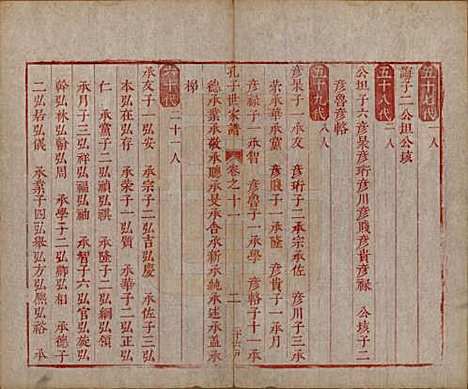 五十七代 一人
誨子二公坦公垓
五十八代 二人
公坦子六彥杲彥珩彥川彥賤彥貴彥祿 公垓子二
彥魯彥輅
五十九代 八人
彥杲子一承友 彥珩子二承宗承佐 彥川子一承
榮承華承黨 彥賤子一承隆 彥貴子一承月
彥祿子一承智 彥魯子一承學 彥輅子十一承
孔子世家譜 卷之十一 二
德承業承敬承聰承是承告承新承純承述承蓋承
梯
六十代 二十一人
承友子一弘安 承宗子二弘吉弘慶 承佐子三弘
本弘在弘存 承榮子一弘質 承華子二弘正弘
仁 承黨子二弘禎弘祺 承隆子二弘綱弘領
承月子三弘祥弘福弘祐 承智子六弘官弘旋弘
幹弘林弘翰弘周 承學子二弘卿弘相 承德子
二弘若弘儀 承業子四弘舉弘方弘熙弘裕 承